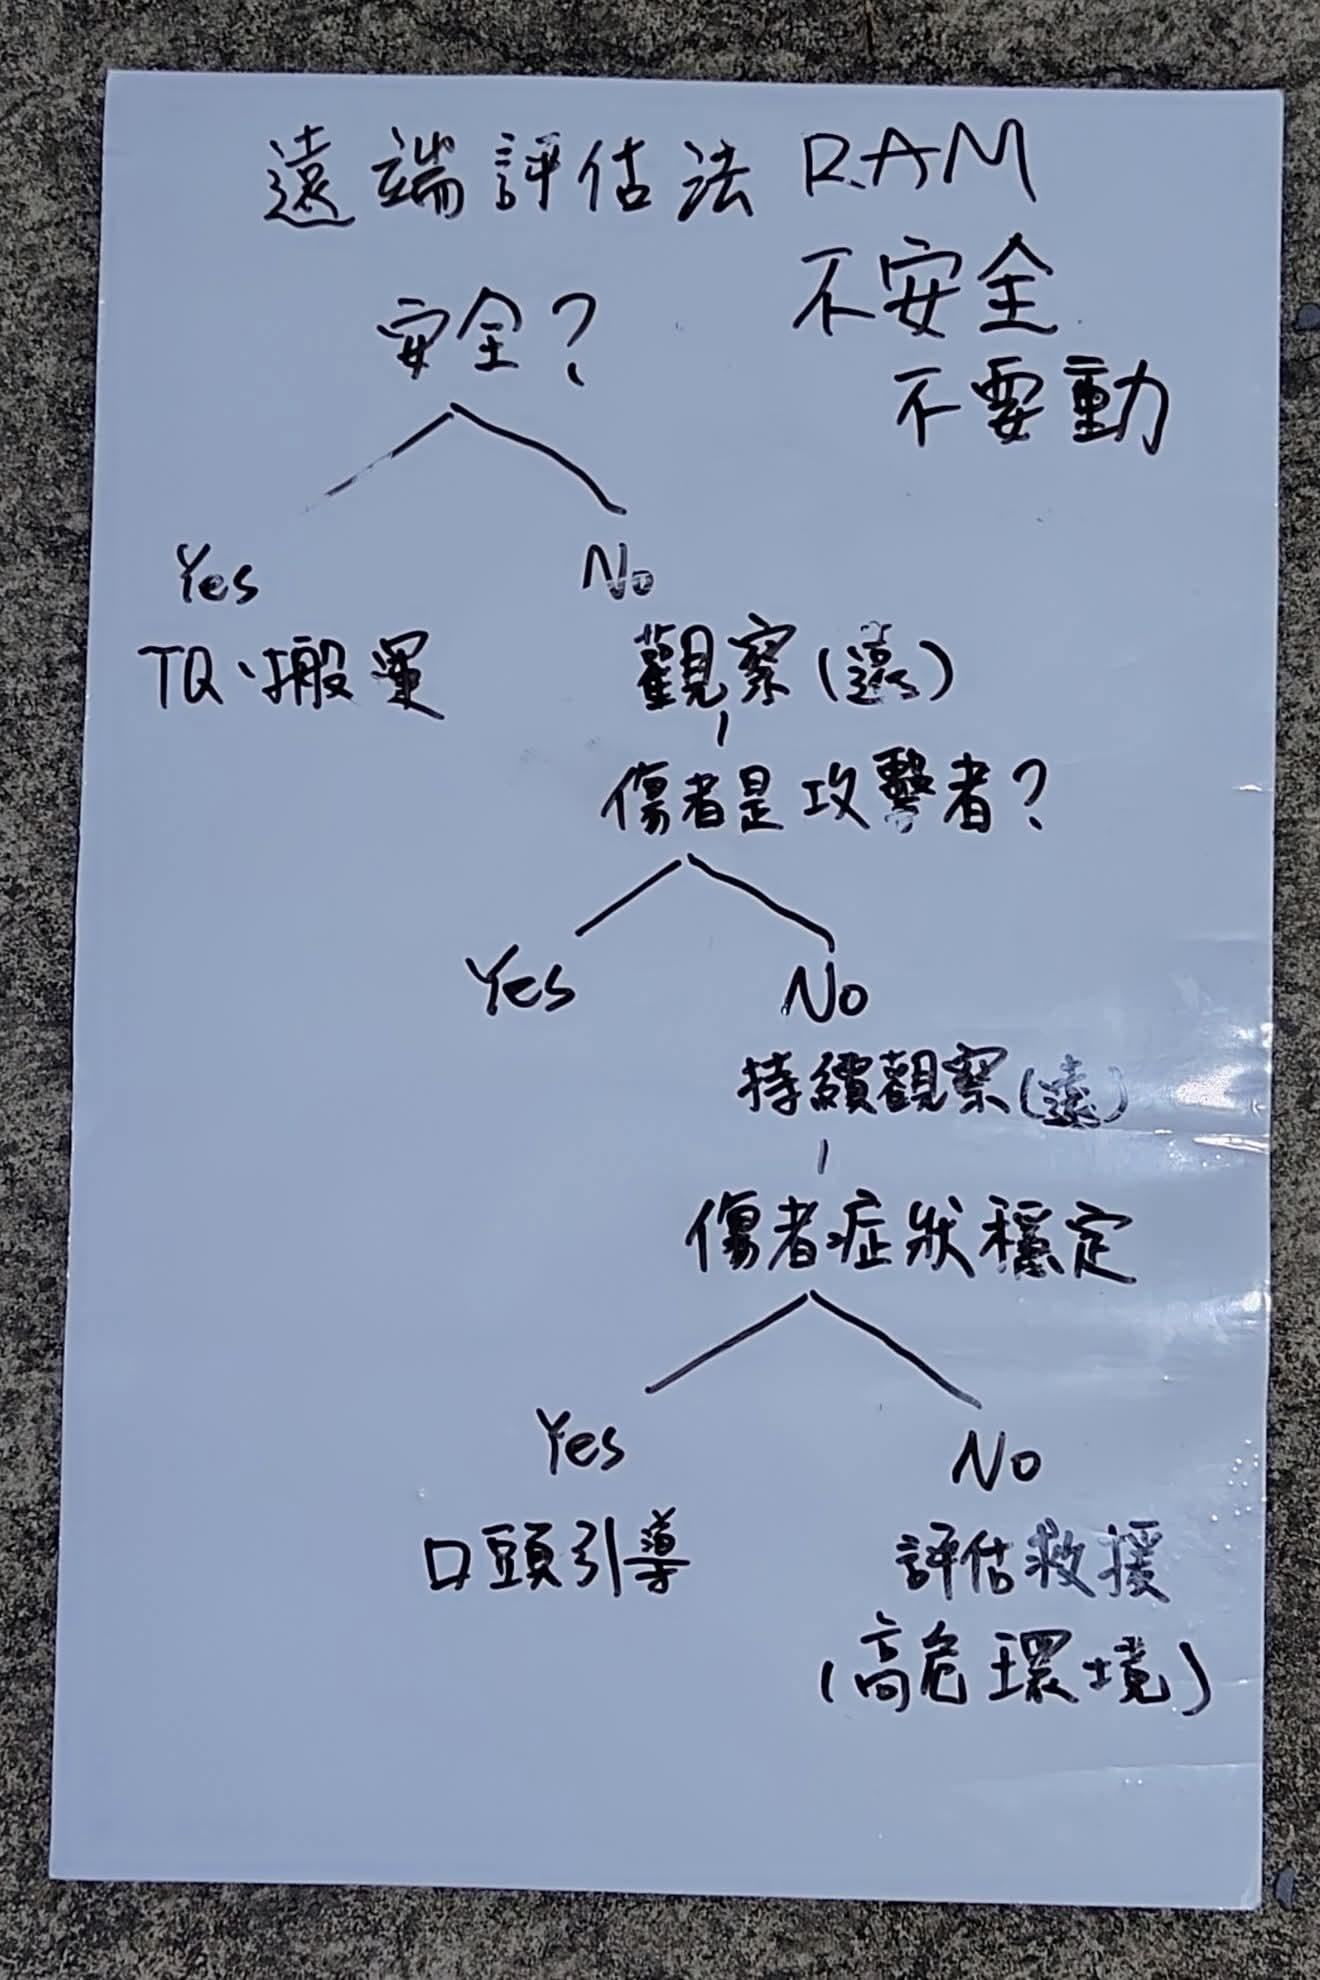 遠端評估法 RAM
不安全
不要動
安全?
Yes
No
TQ、搬運
觀察(遠)
傷者是攻擊者?
Yes
No
持續觀察(遠)
傷者症狀穩定
Yes
No
口頭引導
評估救援
(高危環境)